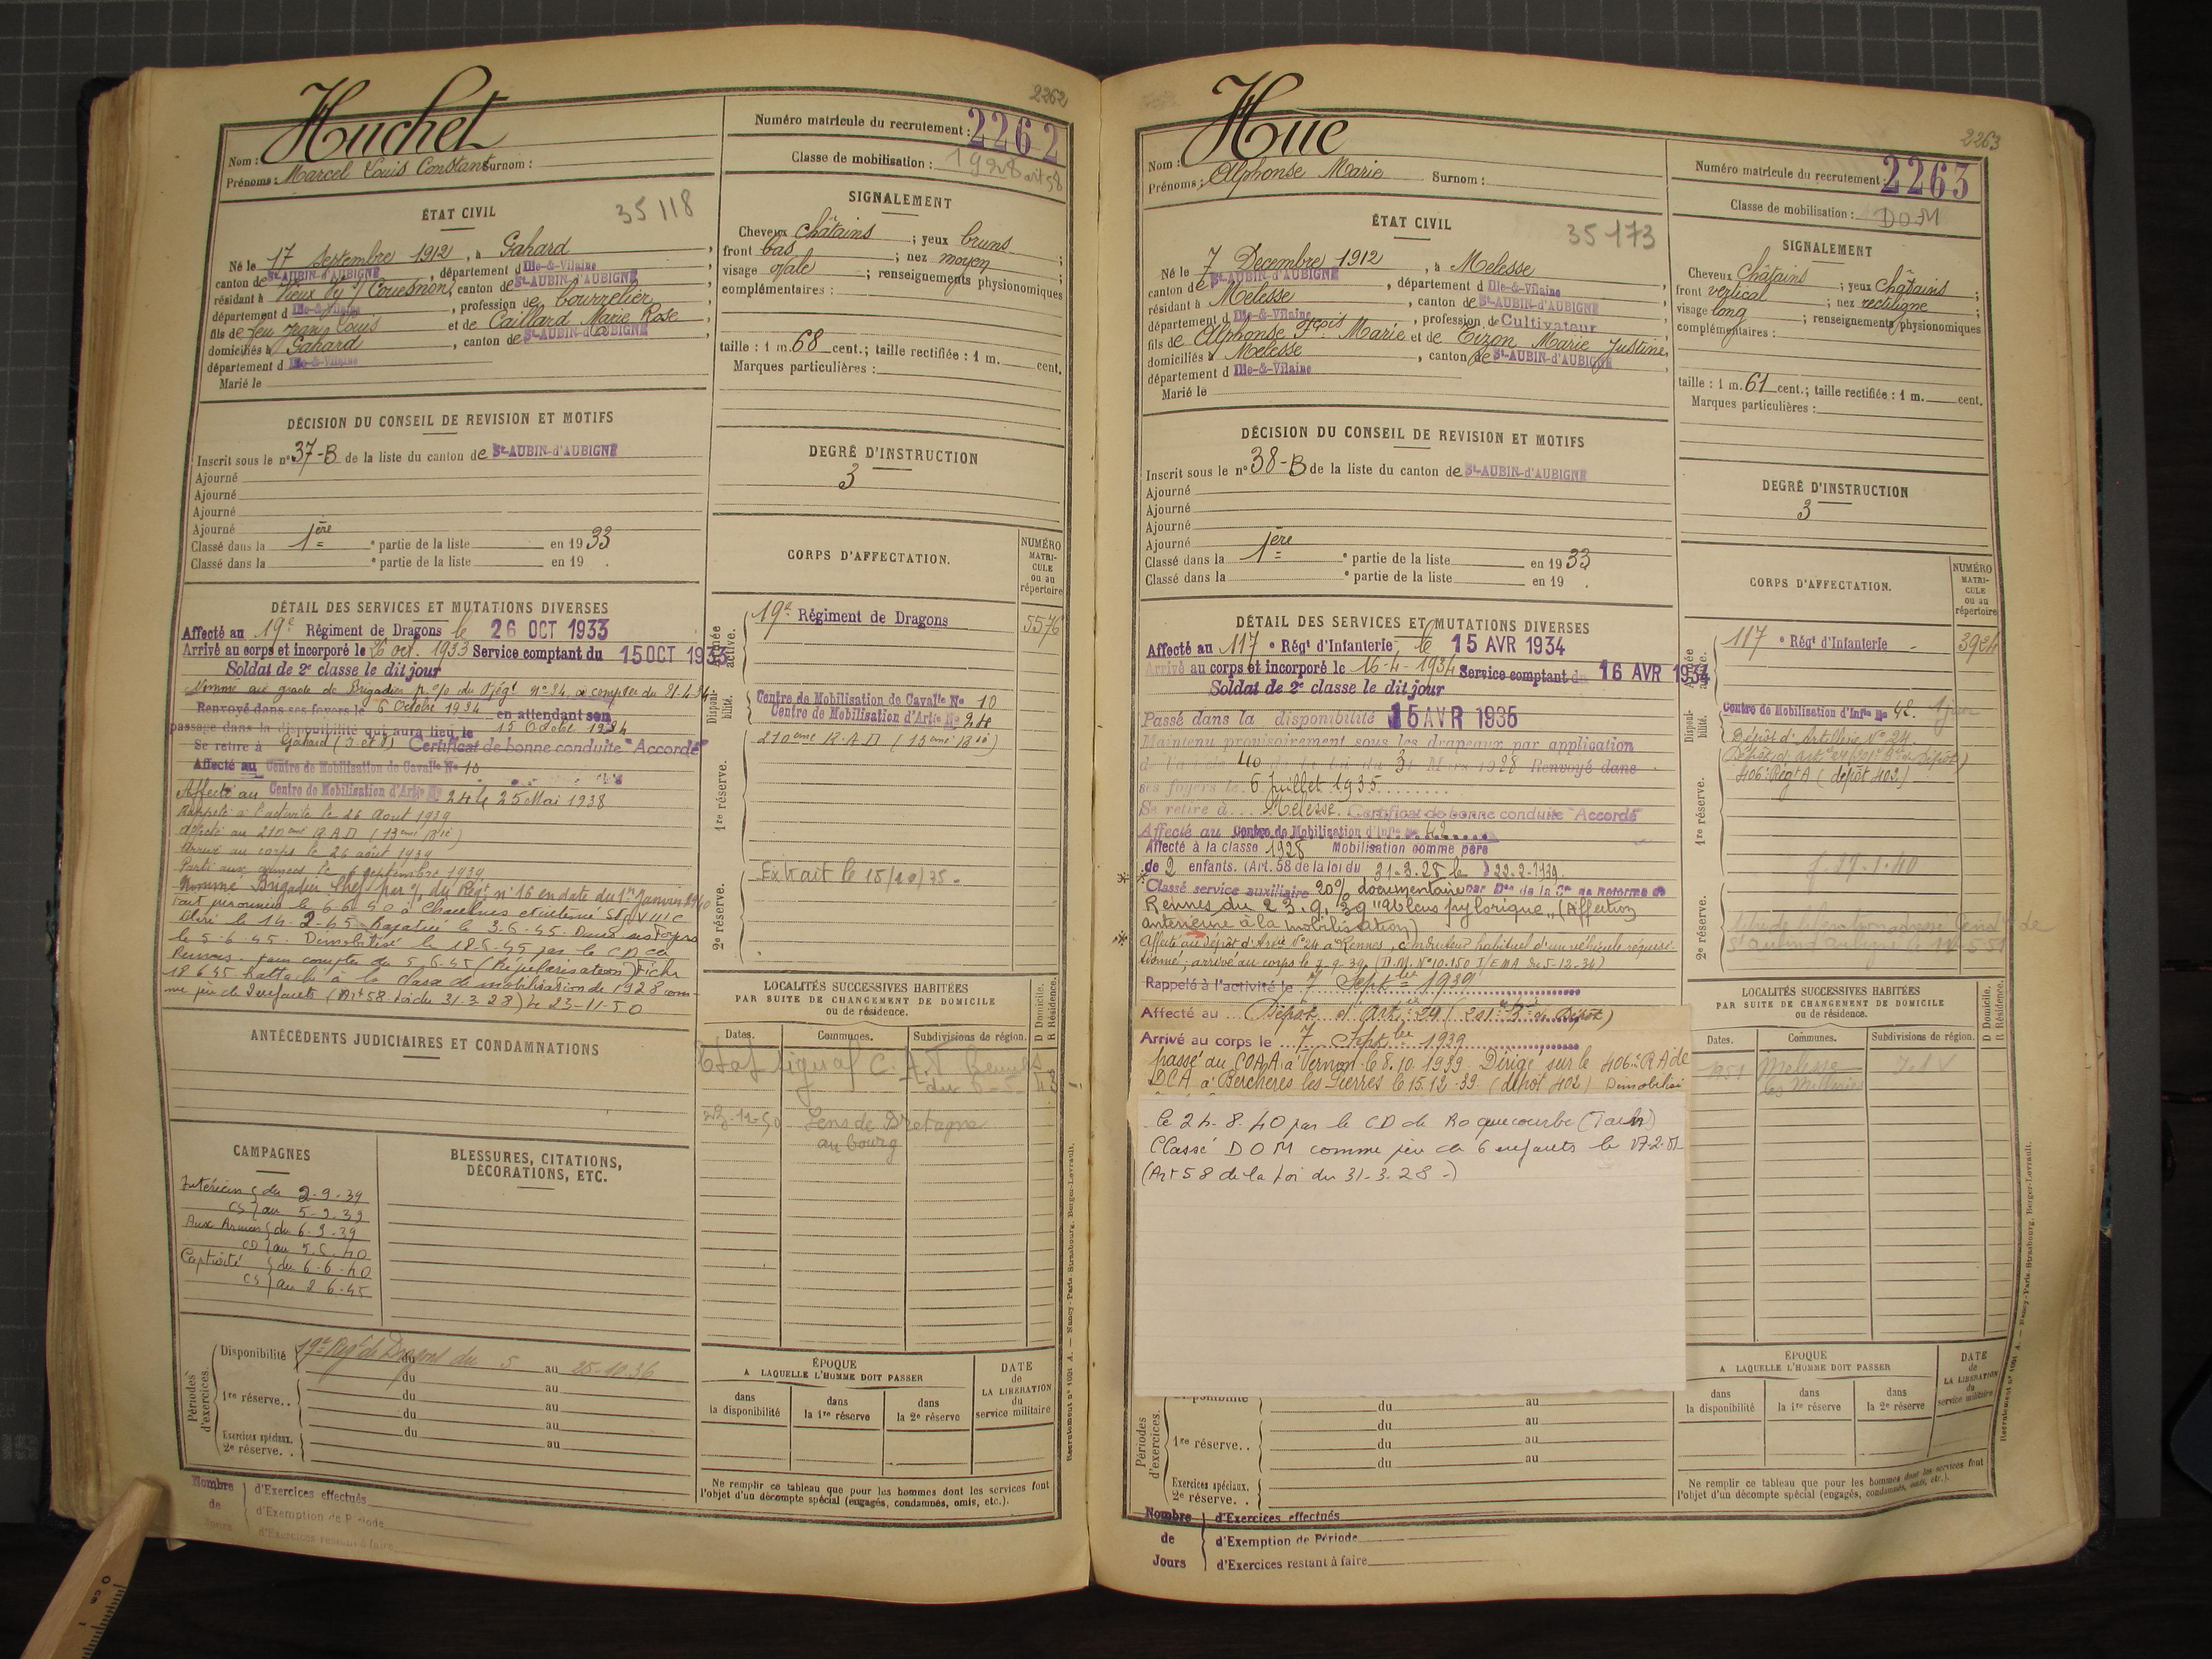 2262
Huchet
Nom :
Prénoms : Marcel Louis Constant Surnom :
Numéro matricule du recrutement : 2262
Classe de mobilisation : 1928 art 58
ÉTAT CIVIL
35118
Né le 17 Septembre 1912, à Gahard,
canton de St-AUBIN-d'AUBIGNÉ, département d Ille-&-Vilaine,
résidant à Vieux Vy s/ Couesnon, canton de St-AUBIN-d'AUBIGNÉ,
département d Ille-&-Vilaine, profession de bourrelier,
fils de feu Louis et de Caillard Marie Rose,
domiciliés à Gahard, canton de St-AUBIN-d'AUBIGNÉ,
département d Ille-&-Vilaine
Marié le
SIGNALEMENT
Cheveux châtains ; yeux bruns ;
front bas ; nez moyen ;
visage ovale ; renseignements physionomiques
complémentaires :
taille : 1 m. 68 cent.; taille rectifiée : 1 m. cent.
Marques particulières :
DÉCISION DU CONSEIL DE REVISION ET MOTIFS
Inscrit sous le n° 37-B de la liste du canton de St-AUBIN-d'AUBIGNÉ
Ajourné
Ajourné
Ajourné
Ajourné
Classé dans la 1ère e partie de la liste en 1933
Classé dans la e partie de la liste en 19 .
DEGRÉ D'INSTRUCTION
3
DÉTAIL DES SERVICES ET MUTATIONS DIVERSES
Affecté au 19e Régiment de Dragons le 26 OCT 1933
Arrivé au corps et incorporé le 26 oct. 1933 Service comptant du 15 OCT 1933
Soldat de 2e classe le dit jour
Nommé au grade de Brigadier p. % du Régt n° 24, à compter du 21.4.34
Renvoyé dans ses foyers le 6 Octobre 1934 en attendant son
passage dans la disponibilité qui aura lieu le 15 Octobre 1934
Se retire à Gahard (I et V) Certificat de bonne conduite "Accordé"
Affecté au Centre de Mobilisation de Cavalie N° 10
Affecté au Centre de Mobilisation d'Artie N° 24 le 25 Mai 1938
Rappelé à l'activité le 26 Aout 1939
Affecté au 210eme R.A.D (13eme Bie)
Arrivé au corps le 26 août 1939
Parti aux armées le 6 septembre 1939
Nommé Brigadier Chef par % du Régt n° 16 en date du 1er Janvier 1940
Fait prisonnier le 6.6.40 à Chaulnes et interné Stg VIII C
Libéré le 14.2.45 Rapatrié le 3.6.45. Dans ses Foyers
le 5-6-45. Démobilisé le 18.6.45 par le CD de
Rennes pour compter du 5.6.45 (Régularisation) Fiche
18.6.45 Rattaché à la classe de mobilisation de 1928 com-
me père de 2 enfants (Art 58 loi du 31.3.28) le 23-11-50
CORPS D'AFFECTATION.
NUMÉRO MATRI-CULE ou au répertoire
Armée active.
19e Régiment de Dragons 5576
Disponi-bilité.
Centre de Mobilisation de Cavalie N° 10
Centre de Mobilisation d'Artie N° 24
1re réserve.
210eme R.A.D (13eme Bie)
2e réserve.
Extrait le 15/10/75.
ANTÉCÉDENTS JUDICIAIRES ET CONDAMNATIONS
LOCALITÉS SUCCESSIVES HABITÉES
PAR SUITE DE CHANGEMENT DE DOMICILE
ou de résidence.
D Domicile. R Résidence.
Dates. Communes. Subdivisions de région.
23-11-50 Sens de Bretagne
au bourg
CAMPAGNES
Intérieur { du 2.9.39
CS } au 5-9.39
Aux Armées { du 6.9.39
CD } au 5.6.40
Captivité { du 6.6.40
CS } au 2 6.45
BLESSURES, CITATIONS,
DÉCORATIONS, ETC.
Périodes d'exercices.
Disponibilité 19e Régt de Dragons du 5 au 25-10.36
du au
1re réserve.. du au
du au
du au
Exercices spéciaux. 2e réserve. . au
ÉPOQUE
A LAQUELLE L'HOMME DOIT PASSER
dans la disponibilité
dans la 1re réserve
dans la 2e réserve
DATE de LA LIBÉRATION du service militaire
Ne remplir ce tableau que pour les hommes dont les services font
l'objet d'un décompte spécial (engagés, condamnés, omis, etc.).
Nombre de Jours
d'Exercices effectués
d'Exemption de Période
d'Exercices restant à faire
Recrutement n° 1001 A. — Nancy-Paris-Strasbourg, Berger-Levrault.
2263
Hue
Nom :
Prénoms : Alphonse Marie Surnom :
Numéro matricule du recrutement : 2263
Classe de mobilisation : DOM
ÉTAT CIVIL
35173
Né le 7 Decembre 1912, à Melesse
canton de St-AUBIN-d'AUBIGNÉ, département d Ille-&-Vilaine
résidant à Melesse, canton de St-AUBIN-d'AUBIGNÉ
département d Ille-&-Vilaine, profession de Cultivateur
fils de Alphonse Marie et de Tizon Marie Justine,
domiciliés à Melesse, canton de St-AUBIN-d'AUBIGNÉ,
département d Ille-&-Vilaine
Marié le
SIGNALEMENT
Cheveux Châtains ; yeux Châtains ;
front vertical ; nez rectiligne ;
visage long ; renseignements physionomiques
complémentaires :
taille : 1 m. 61 cent.; taille rectifiée : 1 m. cent.
Marques particulières :
DÉCISION DU CONSEIL DE REVISION ET MOTIFS
Inscrit sous le n° 38-B de la liste du canton de St-AUBIN-d'AUBIGNÉ
Ajourné
Ajourné
Ajourné
Ajourné
Classé dans la 1ère e partie de la liste en 1933
Classé dans la e partie de la liste en 19 .
DEGRÉ D'INSTRUCTION
3
DÉTAIL DES SERVICES ET MUTATIONS DIVERSES
Affecté au 117 e Régt d'Infanterie le 15 AVR 1934
Arrivé au corps et incorporé le 16-4-1934 Service comptant du 16 AVR 1934
Soldat de 2e classe le dit jour
Passé dans la disponibilité 15 AVR 1935
Maintenu provisoirement sous les drapeaux par application
de l'article 40 de la loi du 31 Mars 1928 Renvoyé dans
ses foyers le 6 Juillet 1935
Se retire à Melesse. Certificat de bonne conduite "Accordé"
Affecté au Centre de Mobilisation d'Infie N° 42
Affecté à la classe 1928 Mobilisation comme père
de 2 enfants. (Art. 58 de la loi du 31-3-28 le 22-2-1939
Classé service auxiliaire 20% documentaire par Don de la Con de Réforme de
Rennes du 23.9.39 "ablcus pylorique" (Affection
antérieure à la mobilisation)
Affecté au dépôt d'Artie N° 24 à Rennes, conducteur habituel d'un véhicule réquisi-
tionné; arrivé au corps le 7-9-39 (D.M. N° 10.150 I/EMA du 5-12-34)
Rappelé à l'activité le 7 Septbre 1939
Affecté au Dépôt d'Artie 24 (201e Bie de Dépôt)
Arrivé au corps le 7 Septbre 1939
passé au COAA à Vernon le 8.10.1939 Dirigé sur le 406e RA de
DCA à Berchères les Pierres le 15.12.39 (dépôt 402) Démobilisé
le 24.8.40 par le CD de Roquecourbe (Tarn)
Classé DOM comme père de 6 enfants le 17.2.51
(Art 58 de la loi du 31.3.28-)
CORPS D'AFFECTATION.
NUMÉRO MATRI-CULE ou au répertoire
Armée active.
117 e Régt d'Infanterie 3924
Disponi-bilité.
Centre de Mobilisation d'Infie N° 42.
Dépôt d'Artillerie N° 24
1re réserve.
406e Régt A (dépôt 402)
27.1.40
2e réserve.
LOCALITÉS SUCCESSIVES HABITÉES
PAR SUITE DE CHANGEMENT DE DOMICILE
ou de résidence.
D Domicile. R Résidence.
Dates. Communes. Subdivisions de région.
1951 Melesse I et V
Périodes d'exercices.
Disponibilité du au
du au
1re réserve.. du au
du au
Exercices spéciaux. 2e réserve. .
ÉPOQUE
A LAQUELLE L'HOMME DOIT PASSER
dans la disponibilité
dans la 1re réserve
dans la 2e réserve
DATE de LA LIBÉRATION du service militaire
Ne remplir ce tableau que pour les hommes dont les services font
l'objet d'un décompte spécial (engagés, condamnés, omis, etc.).
Nombre de Jours
d'Exercices effectués
d'Exemption de Période
d'Exercices restant à faire
Recrutement n° 1001 A. — Nancy-Paris-Strasbourg, Berger-Levrault.
0 cm 1